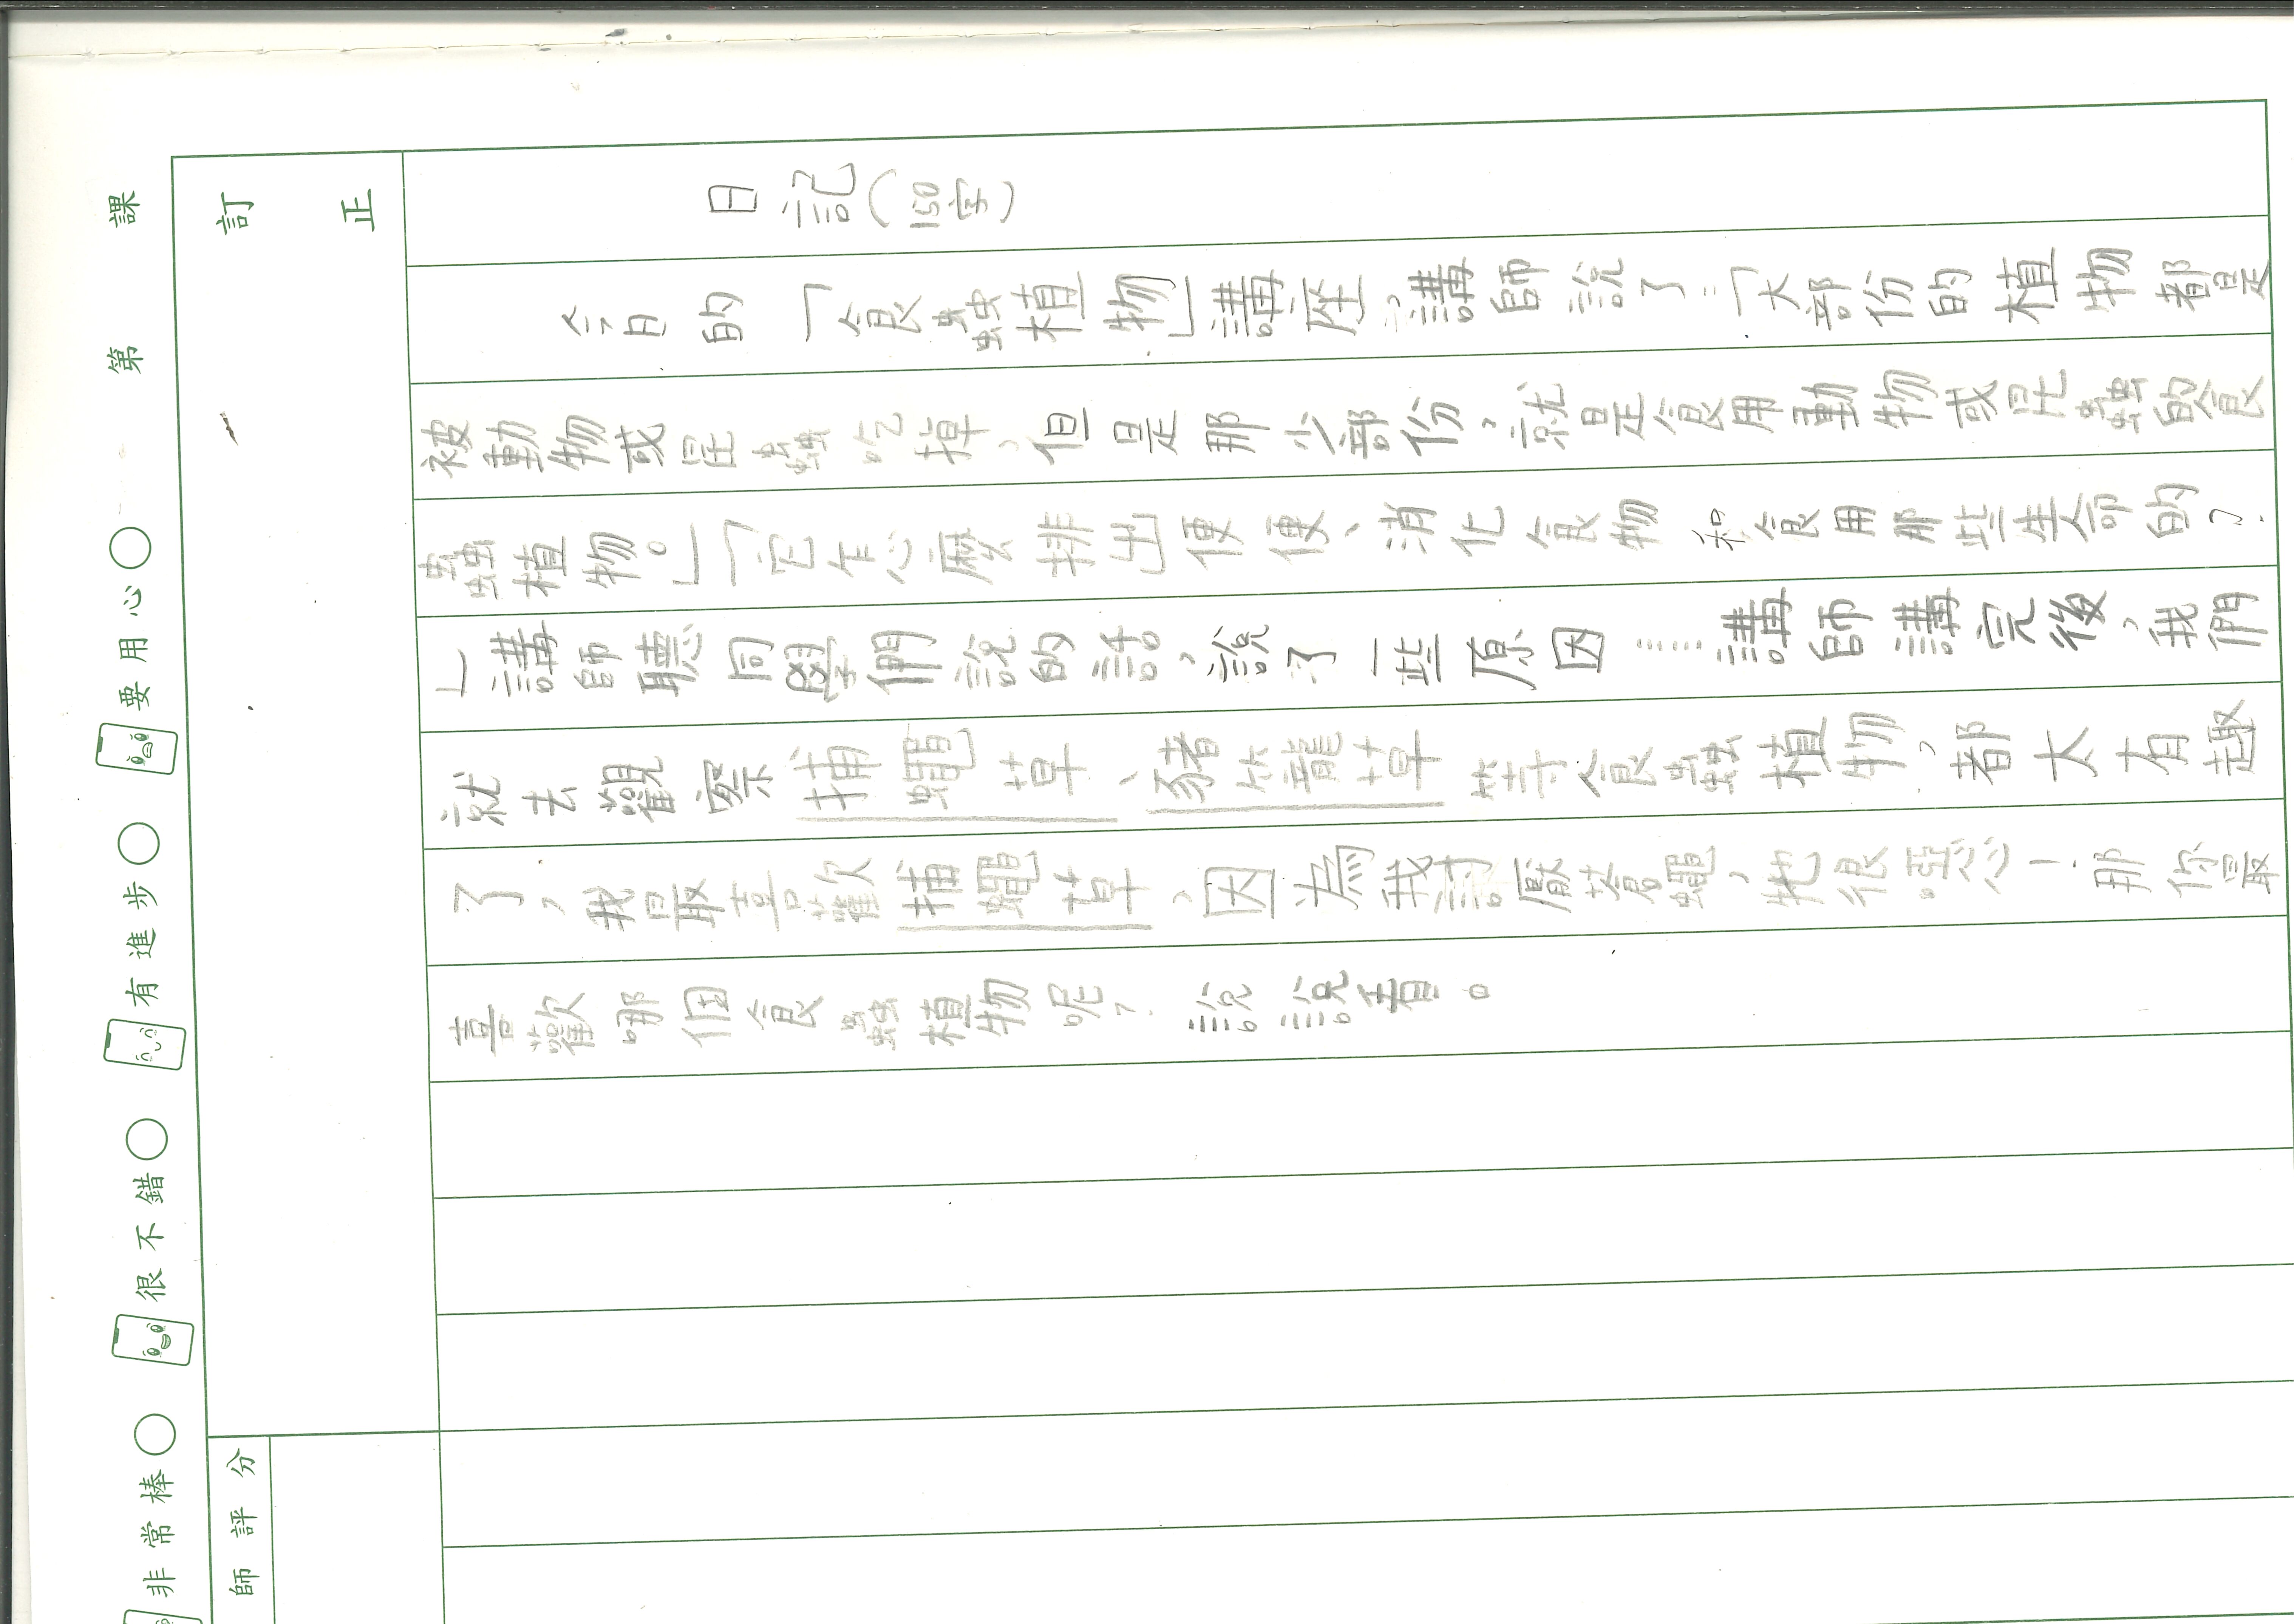 第　課
要用心○　有進步○　很不錯○　非常棒○
訂正
師評分
日記(150字)
今日的「食蟲植物」講座,講師說了:「大部份的植物都是
被動物或昆蟲吃掉,但是那少部份,就是食用動物或昆蟲的食
蟲植物。」「它怎麼排出便便、消化食物和食用那些生命的?
」講師聽同學們說的話,說了一些原因……講師講完後,我們
就去觀察捕蠅草、豬竹籠草等食蟲植物,都太有趣
了,我最喜歡捕蠅草,因為我討厭蒼蠅,牠很噁心!那你最
喜歡哪個食蟲植物呢?說說看。